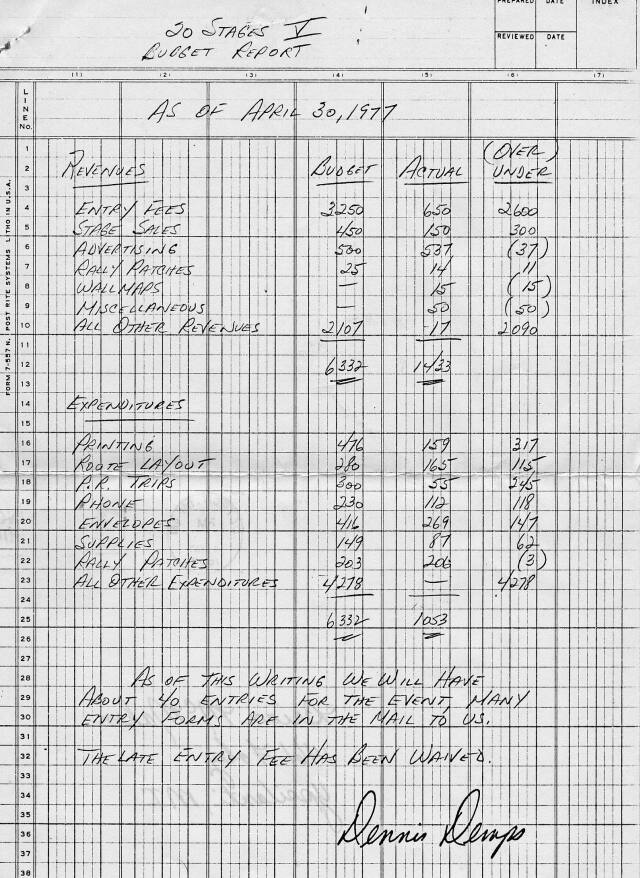 PREPARED DATE INDEX
REVIEWED DATE
20 STAGES V
BUDGET REPORT
(1) (2) (3) (4) (5) (6) (7)
LINE No.
AS OF APRIL 30, 1977
1 (OVER)
2 REVENUES BUDGET ACTUAL UNDER
3
4 ENTRY FEES 3250 650 2600
5 STAGE SALES 450 150 300
6 ADVERTISING 500 537 (37)
7 RALLY PATCHES 25 14 11
8 WALLMAPS — 15 (15)
9 MISCELLANEOUS — 50 (50)
10 ALL OTHER REVENUES 2107 17 2090
11
12 6332 1433
13
14 EXPENDITURES
15
16 PRINTING 476 159 317
17 ROUTE LAYOUT 280 165 115
18 P.R. TRIPS 300 55 245
19 PHONE 230 112 118
20 ENVELOPES 416 269 147
21 SUPPLIES 149 87 62
22 RALLY PATCHES 203 206 (3)
23 ALL OTHER EXPENDITURES 4278 — 4278
24
25 6332 1053
26
27
28 AS OF THIS WRITING WE WILL HAVE
29 ABOUT 40 ENTRIES FOR THE EVENT, MANY
30 ENTRY FORMS ARE IN THE MAIL TO US.
31
32 THE LATE ENTRY FEE HAS BEEN WAIVED.
33
34
35
36 Dennis Demps
37
38
FORM 7-557 N. POST RITE SYSTEMS LITHO IN U.S.A.